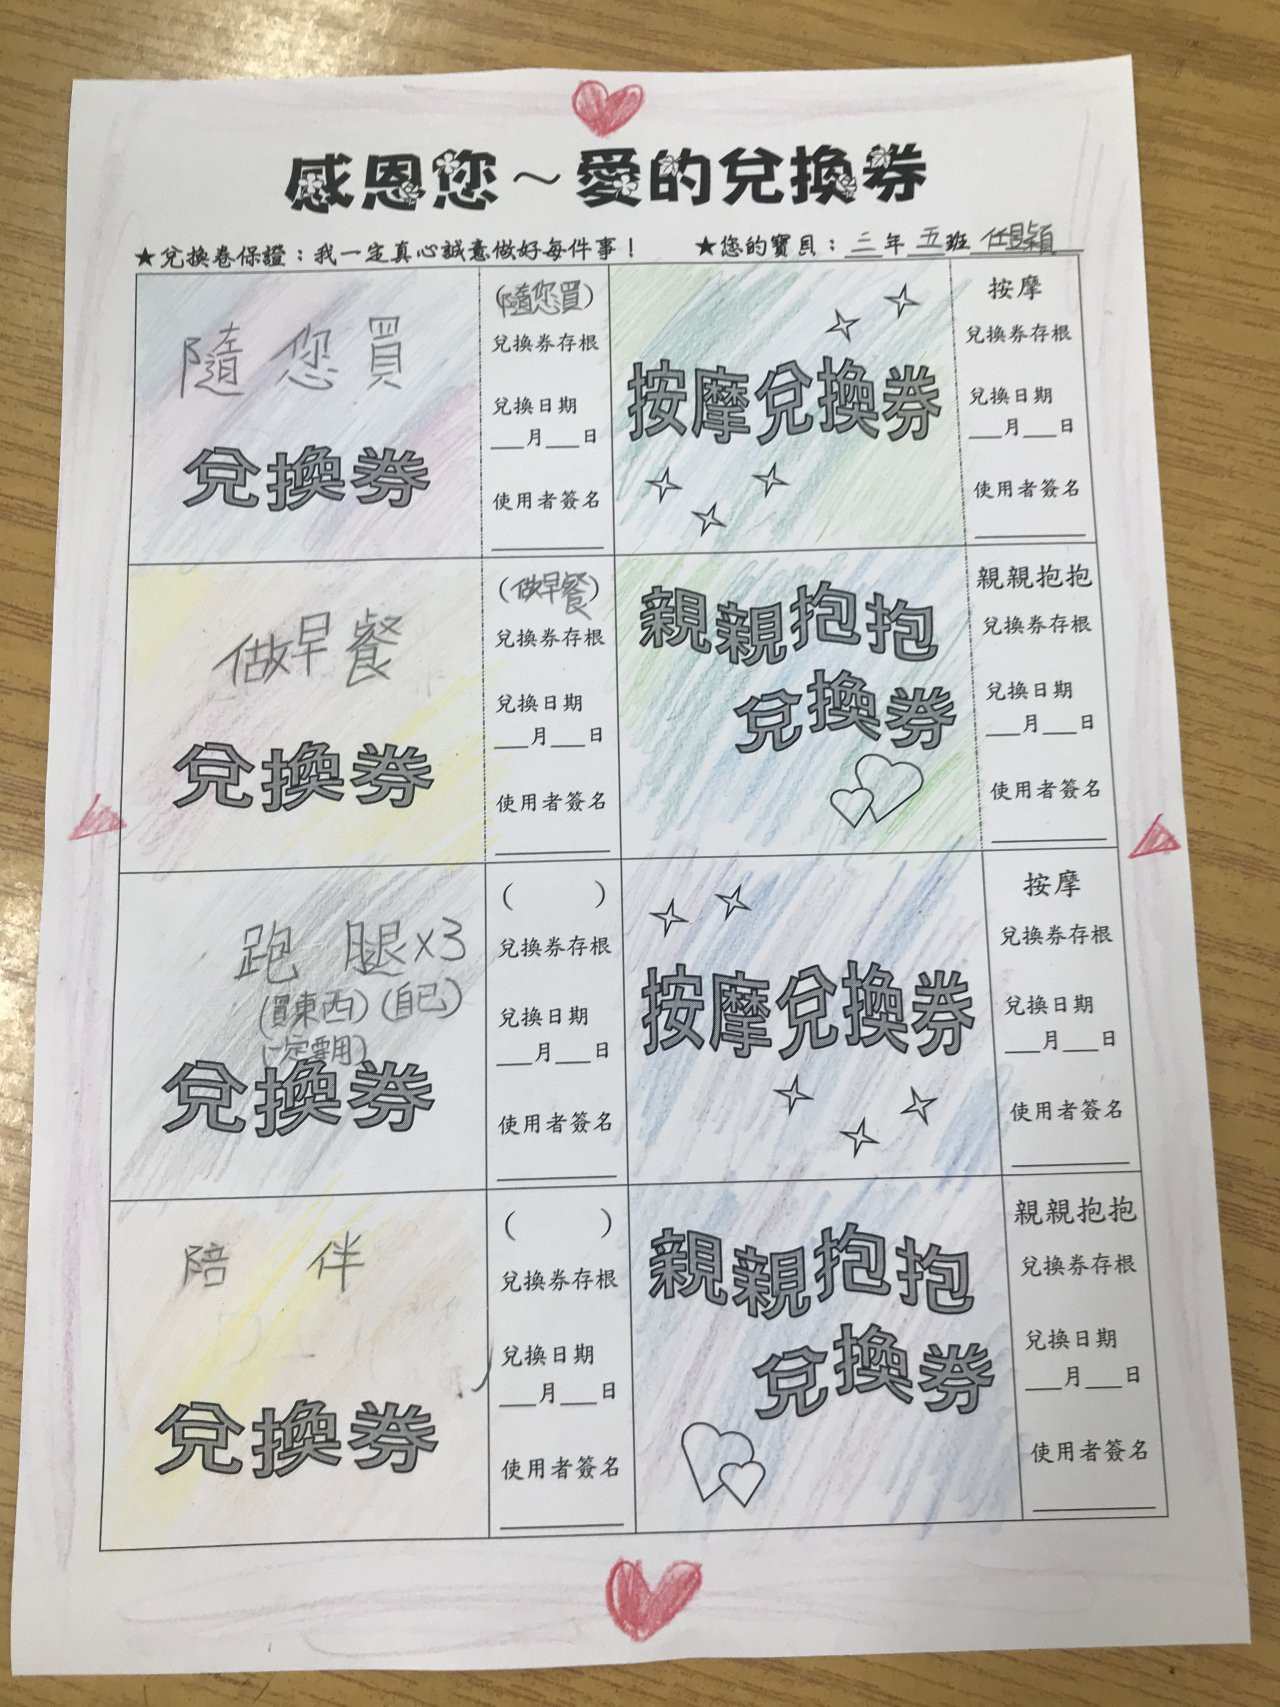 感恩您～愛的兌換券
★兌換卷保證：我一定真心誠意做好每件事！
★您的寶貝：三年五班
隨您買
兌換券
(隨您買)
兌換券存根
兌換日期
__月__日
使用者簽名
按摩兌換券
按摩
兌換券存根
兌換日期
__月__日
使用者簽名
做早餐
兌換券
(做早餐)
兌換券存根
兌換日期
__月__日
使用者簽名
親親抱抱
兌換券
親親抱抱
兌換券存根
兌換日期
__月__日
使用者簽名
跑腿x3
(買東西)(自己)
(一定要用)
兌換券
(　　)
兌換券存根
兌換日期
__月__日
使用者簽名
按摩兌換券
按摩
兌換券存根
兌換日期
__月__日
使用者簽名
陪伴
兌換券
(　　)
兌換券存根
兌換日期
__月__日
使用者簽名
親親抱抱
兌換券
親親抱抱
兌換券存根
兌換日期
__月__日
使用者簽名